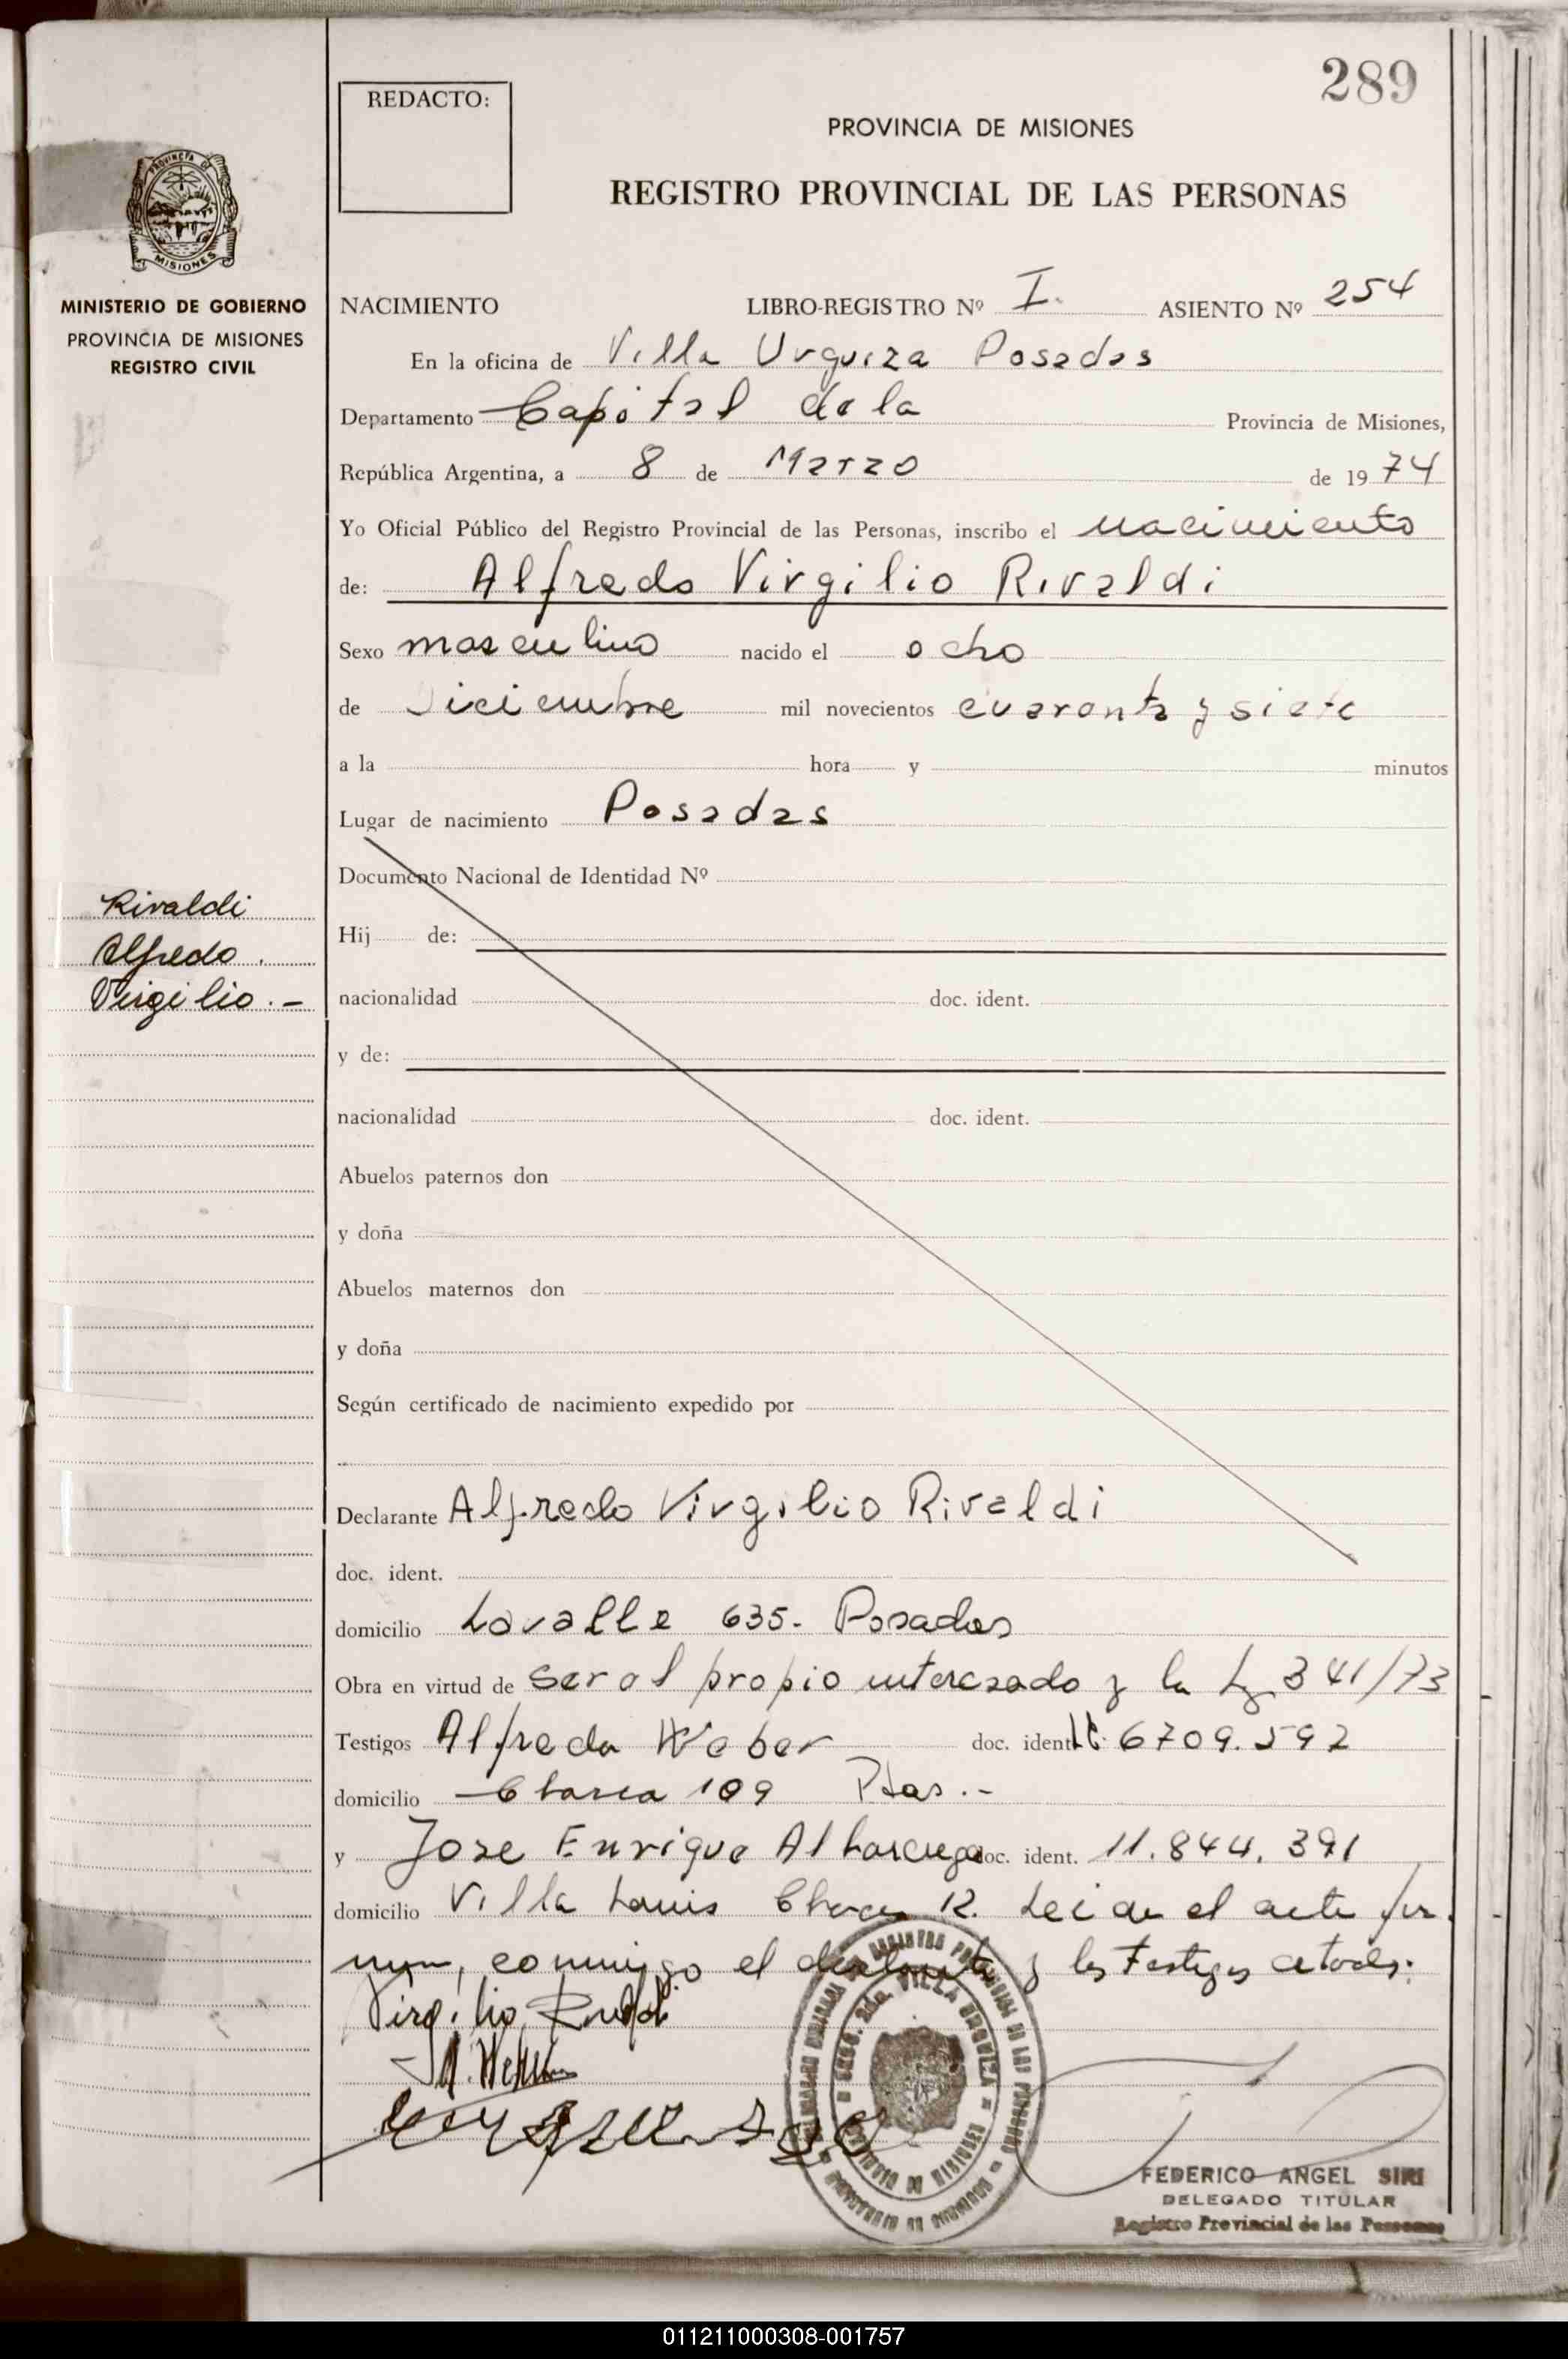 289
REDACTO:
PROVINCIA DE MISIONES
REGISTRO PROVINCIAL DE LAS PERSONAS
PROVINCIA DE
MISIONES
MINISTERIO DE GOBIERNO
PROVINCIA DE MISIONES
REGISTRO CIVIL
NACIMIENTO LIBRO-REGISTRO Nº I. ASIENTO Nº 254
En la oficina de Villa Urquiza Posadas
Departamento Capital de la Provincia de Misiones,
República Argentina, a 8 de Marzo de 1974
Yo Oficial Público del Registro Provincial de las Personas, inscribo el nacimiento
de: Alfredo Virgilio Rivaldi
Sexo masculino nacido el ocho
de Diciembre mil novecientos cuarenta y siete
a la hora y minutos
Lugar de nacimiento Posadas
Documento Nacional de Identidad Nº
Rivaldi
Alfredo.
Virgilio.-
Hij de:
nacionalidad doc. ident.
y de:
nacionalidad doc. ident.
Abuelos paternos don
y doña
Abuelos maternos don
y doña
Según certificado de nacimiento expedido por
Declarante Alfredo Virgilio Rivaldi
doc. ident.
domicilio Lavalle 635- Posadas
Obra en virtud de ser el propio interesado y la Ly 341/73
Testigos Alfredo Weber doc. ident. 6709.592
domicilio 109 Pdas.-
y Jose Enrique doc. ident. 11.844.391
domicilio Villa Lanus Chacra 12. Leida el acta fir
man, conmigo el declarante y los testigos citados.
Virgilio Rivaldi
A. Weber
VILLA URQUIZA
PROVINCIA DE MISIONES
FEDERICO ANGEL SIRI
DELEGADO TITULAR
Registro Provincial de las Personas
011211000308-001757